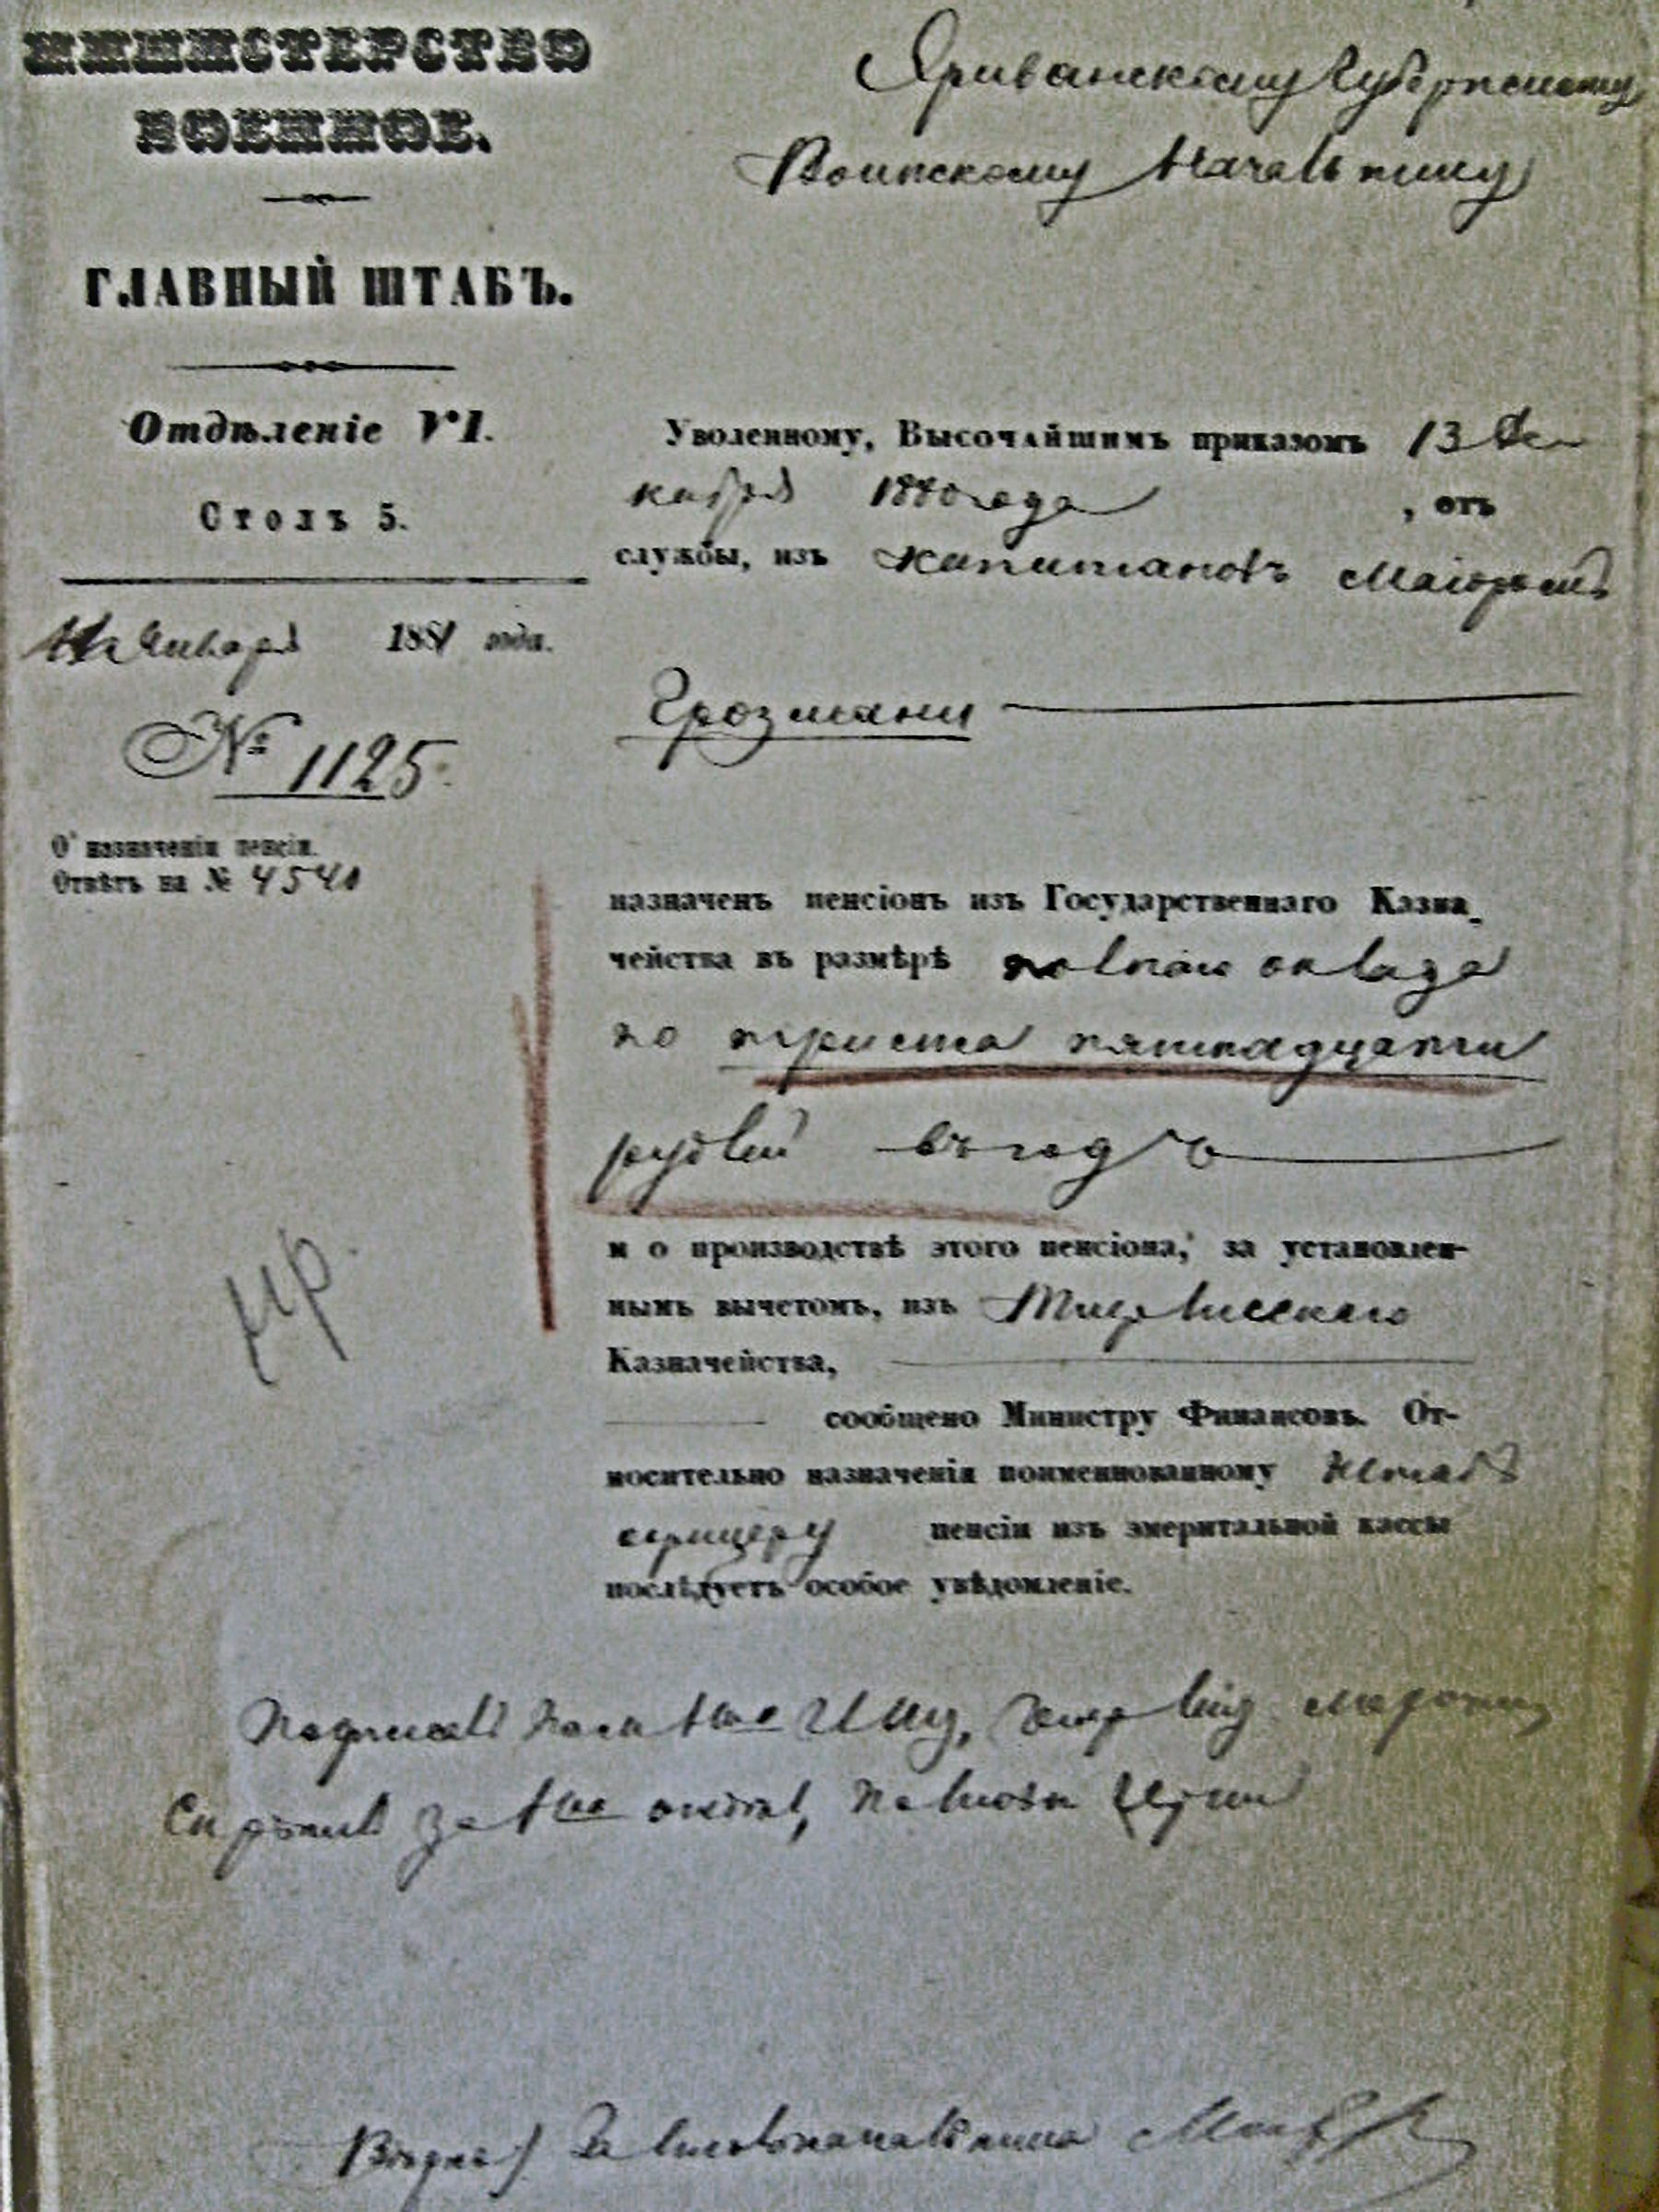 МИНИСТЕРСТВО
ВОЕННОЕ.
ГЛАВНЫЙ ШТАБЪ.
Отдѣленіе VI.
Столъ 5.
Января 1881 года.
№ 1125.
О назначеніи пенсіи.
Отвѣтъ на № 4540
Эриванскому Губернскому
Воинскому Начальнику
Уволенному, Высочайшимъ приказомъ 13 Де
кабря 1880 года, отъ
службы, изъ капитановъ Маіоромъ
Грозмани
назначенъ пенсіонъ изъ Государственнаго Казна-
чейства въ размѣрѣ полнаго оклада
по триста пятнадцати
рублей въ годъ
и о производствѣ этого пенсіона, за установлен-
нымъ вычетомъ, изъ Тифлисскаго
Казначейства,
сообщено Министру Финансовъ. От-
носительно назначенія поименнованному Штабъ
офицеру пенсіи изъ эмеритальной кассы
послѣдуетъ особое увѣдомленіе.
Подписалъ
Скрѣпилъ За
Вѣрно: